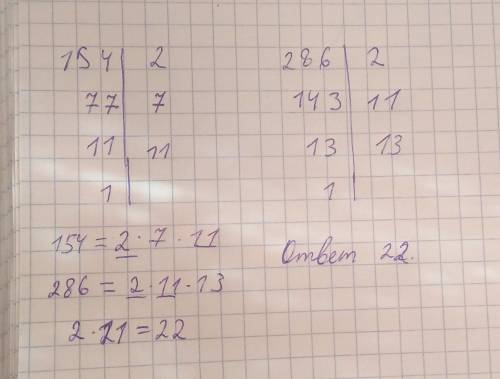 154 | 2
77 | 7
11 | 11
1 |
286 | 2
143 | 11
13 | 13
1 |
154 = 2 · 7 · 11
286 = 2 · 11 · 13
2 · 11 = 22
Ответ 22.